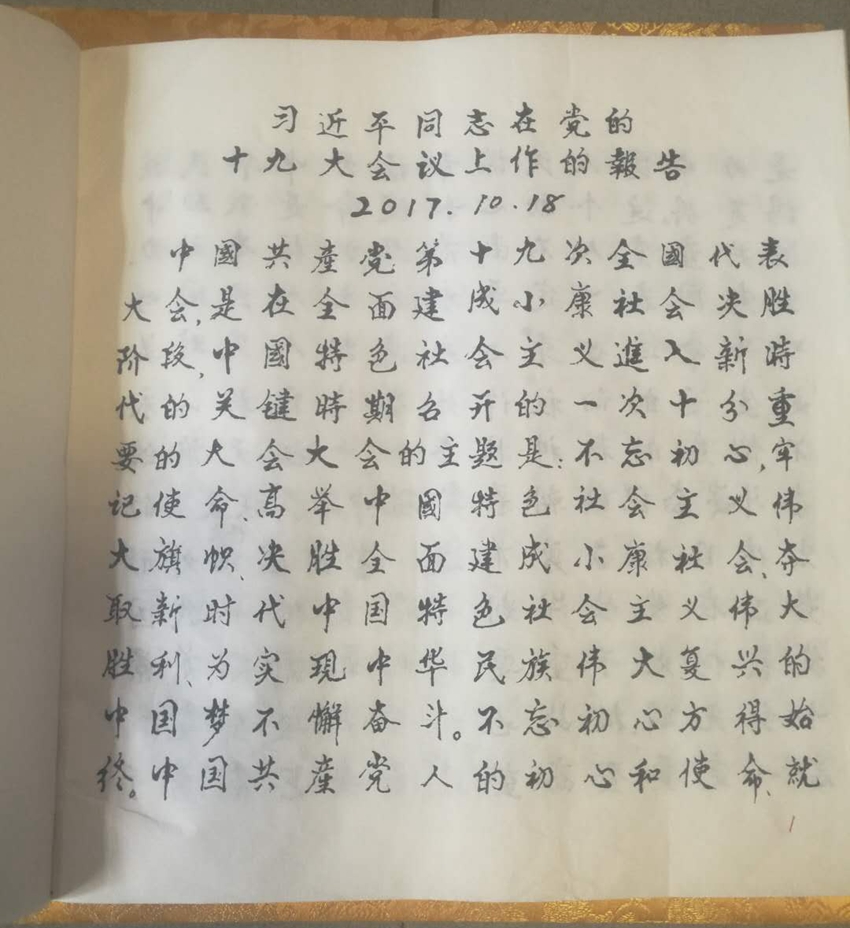 习近平同志在党的
十九大会议上作的報告
2017.10.18
中國共產党第十九次全國代表
大会,是在全面建成小康社会决胜
阶段,中國特色社会主义進入新時
代的关键時期召开的一次十分重
要的大会大会的主题是:不忘初心,牢
记使命、高举中國特色社会主义伟
大旗帜、决胜全面建成小康社会、夺
取新时代中国特色社会主义伟大
胜利、为实现中华民族伟大复兴的
中国梦不懈奋斗。不忘初心方得始
终。中国共產党人的初心和使命、就
1